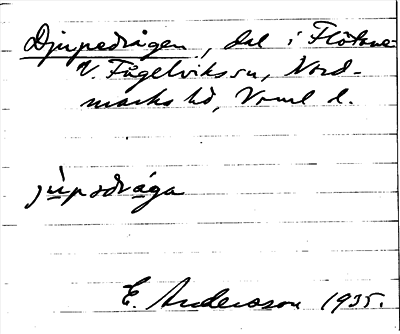 Djupedrågen, dal i Flötane
V. Fågelviks sn, Nord-
marks hd, Vrml l.
jùpədrága
E. Andersson 1935.